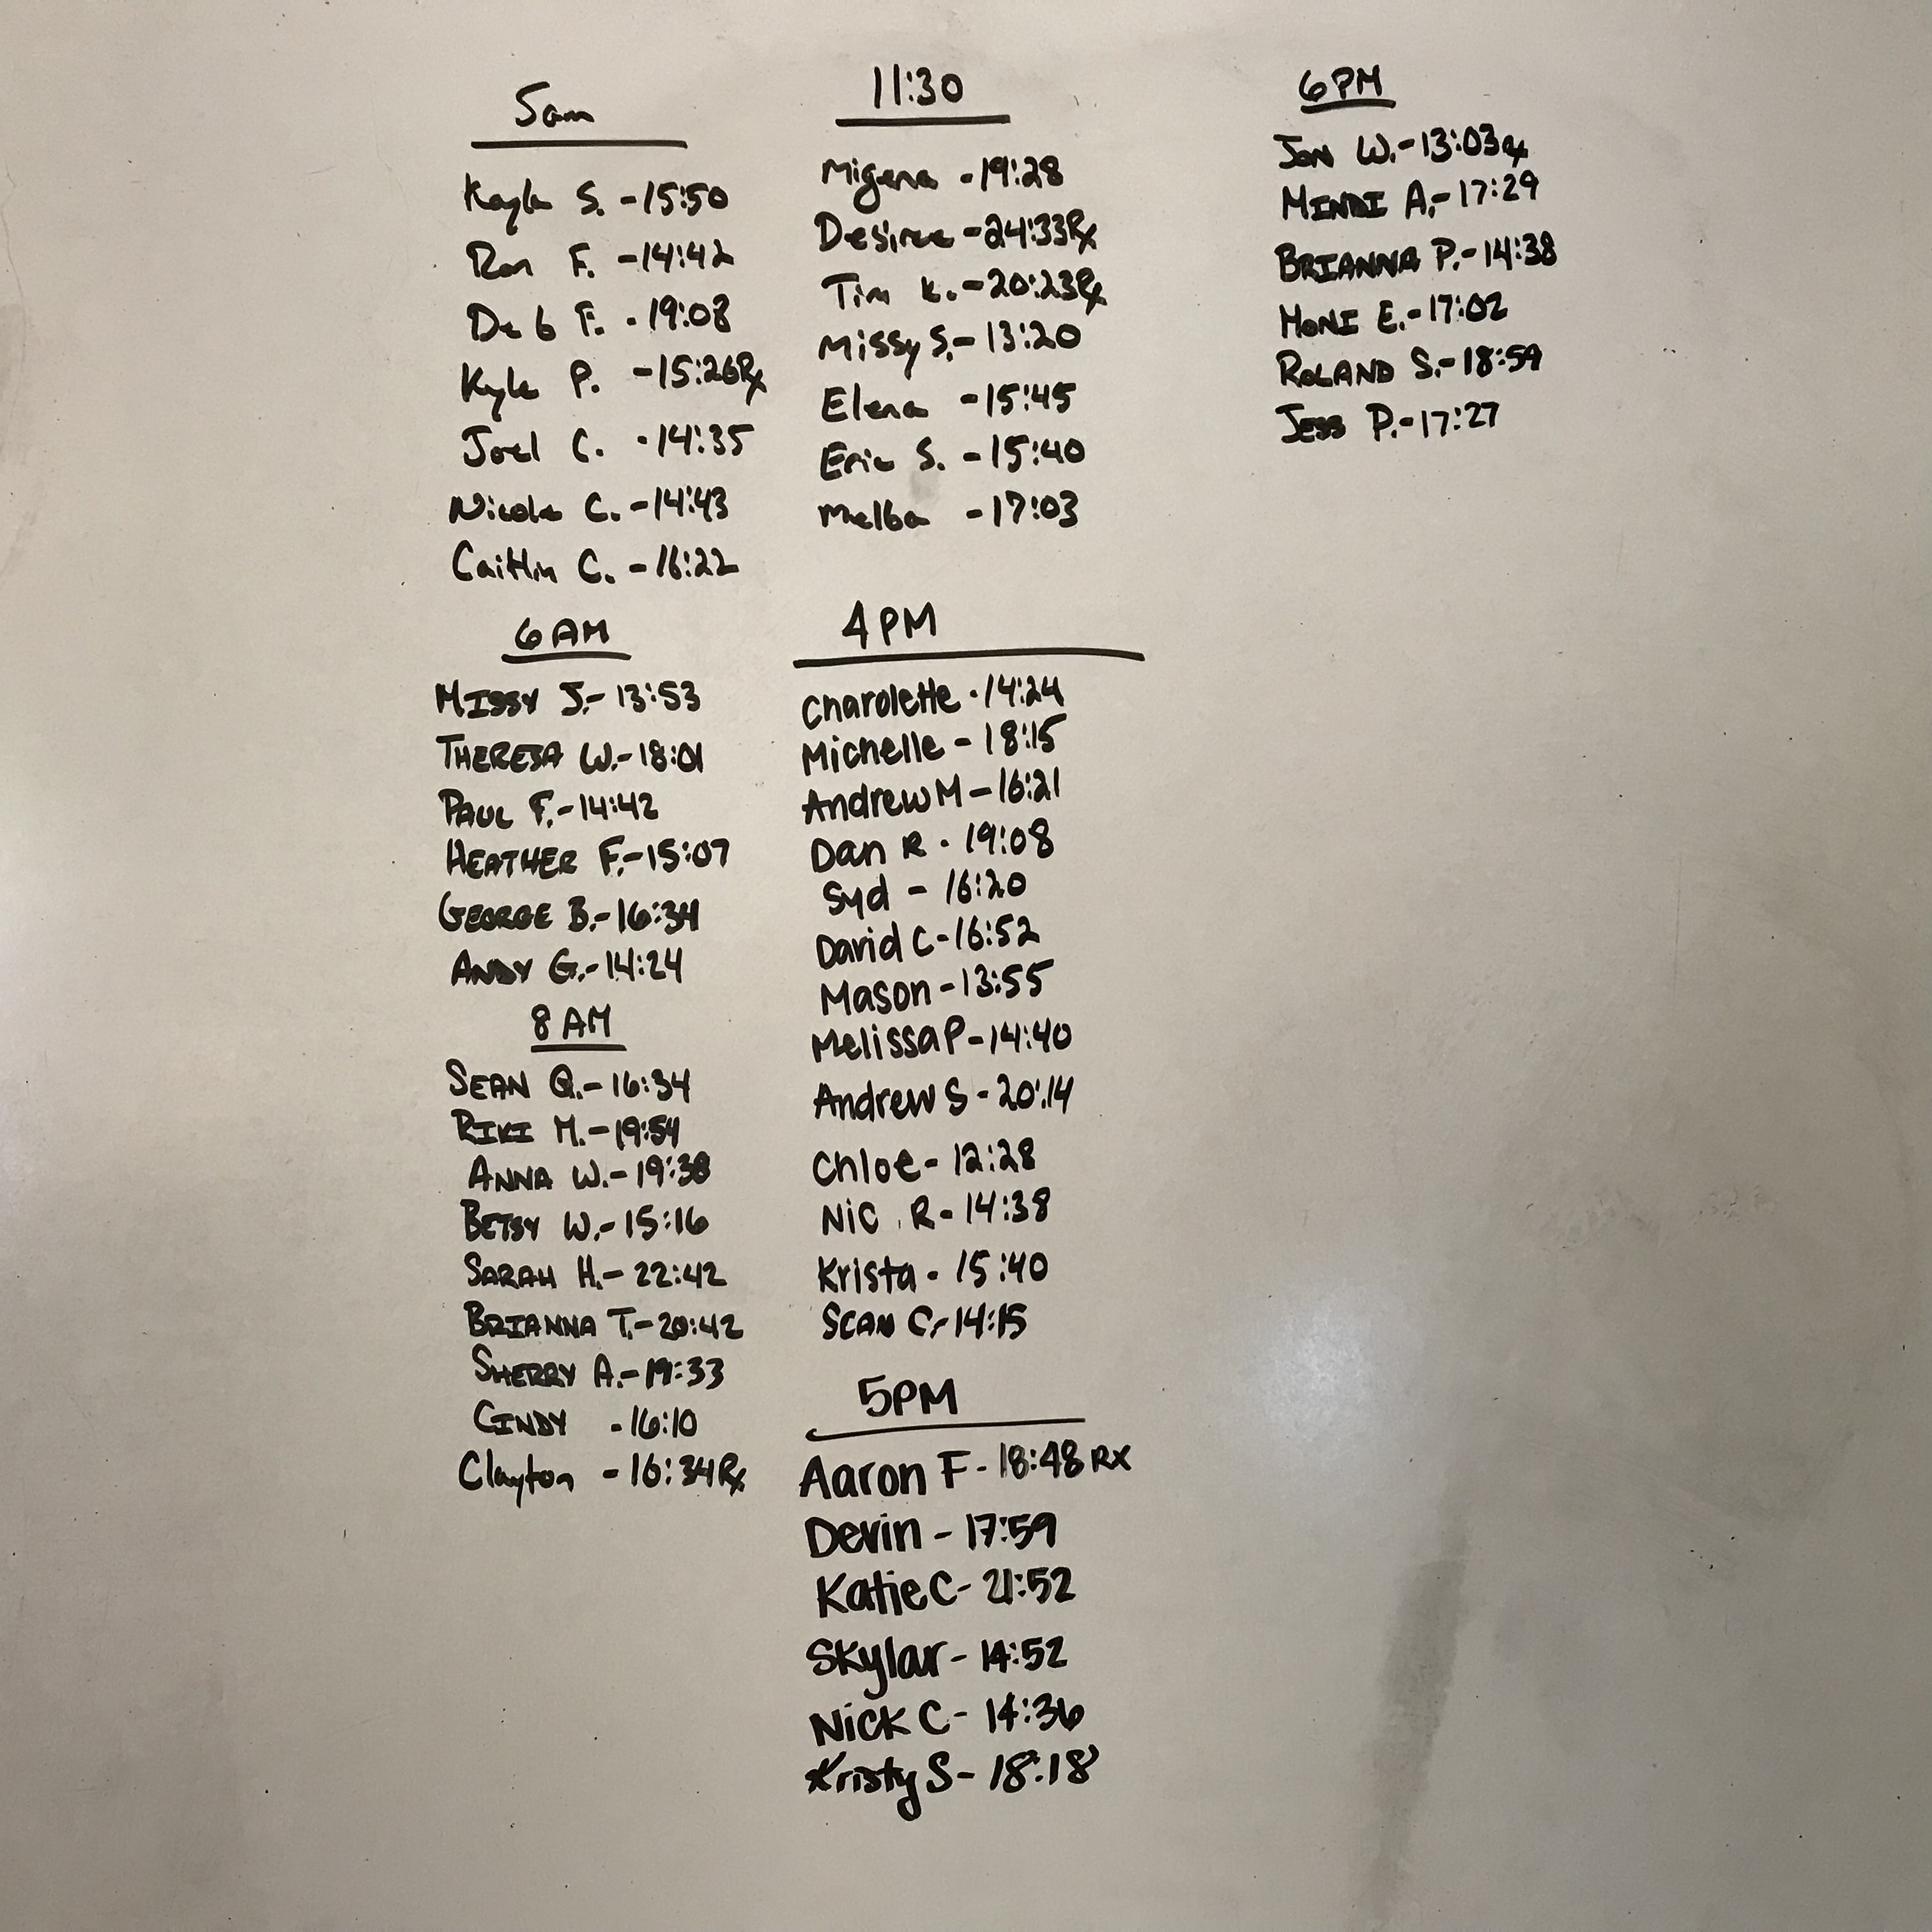 5am
Kayla S. - 15:50
Ron F. - 14:42
Deb F. - 19:08
Kyle P. - 15:26Rx
Joel C. - 14:35
Nicole C. - 14:43
Caitlin C. - 16:22
6 AM
MISSY J. - 13:53
THERESA W. - 18:01
PAUL F. - 14:42
HEATHER F. - 15:07
GEORGE B. - 16:34
ANDY G. - 14:24
8 AM
SEAN Q. - 16:34
RIKI M. - 19:54
ANNA W. - 19:38
BETSY W. - 15:16
SARAH H. - 22:42
BRIANNA T. - 20:42
SHERRY A. - 19:33
CINDY - 16:10
Clayton - 16:34Rx
11:30
Migena - 19:28
Desiree - 24:33Rx
Tim K. - 20:23Rx
Missy S. - 13:20
Elena - 15:45
Eric S. - 15:40
Melba - 17:03
4 PM
Charolette - 14:24
Michelle - 18:15
Andrew M - 16:21
Dan R - 19:08
Syd - 16:20
David C - 16:52
Mason - 13:55
Melissa P - 14:40
Andrew S - 20:14
Chloe - 12:28
Nic R - 14:38
Krista - 15:40
SEAN C - 14:15
5PM
Aaron F - 18:48 RX
Devin - 17:59
Katie C - 21:52
Skylar - 14:52
Nick C - 14:36
Kristy S - 18:18
6PM
JON W. - 13:03Rx
MINDI A. - 17:29
BRIANNA P. - 14:38
MONI E. - 17:02
ROLAND S. - 18:59
JESS P. - 17:27